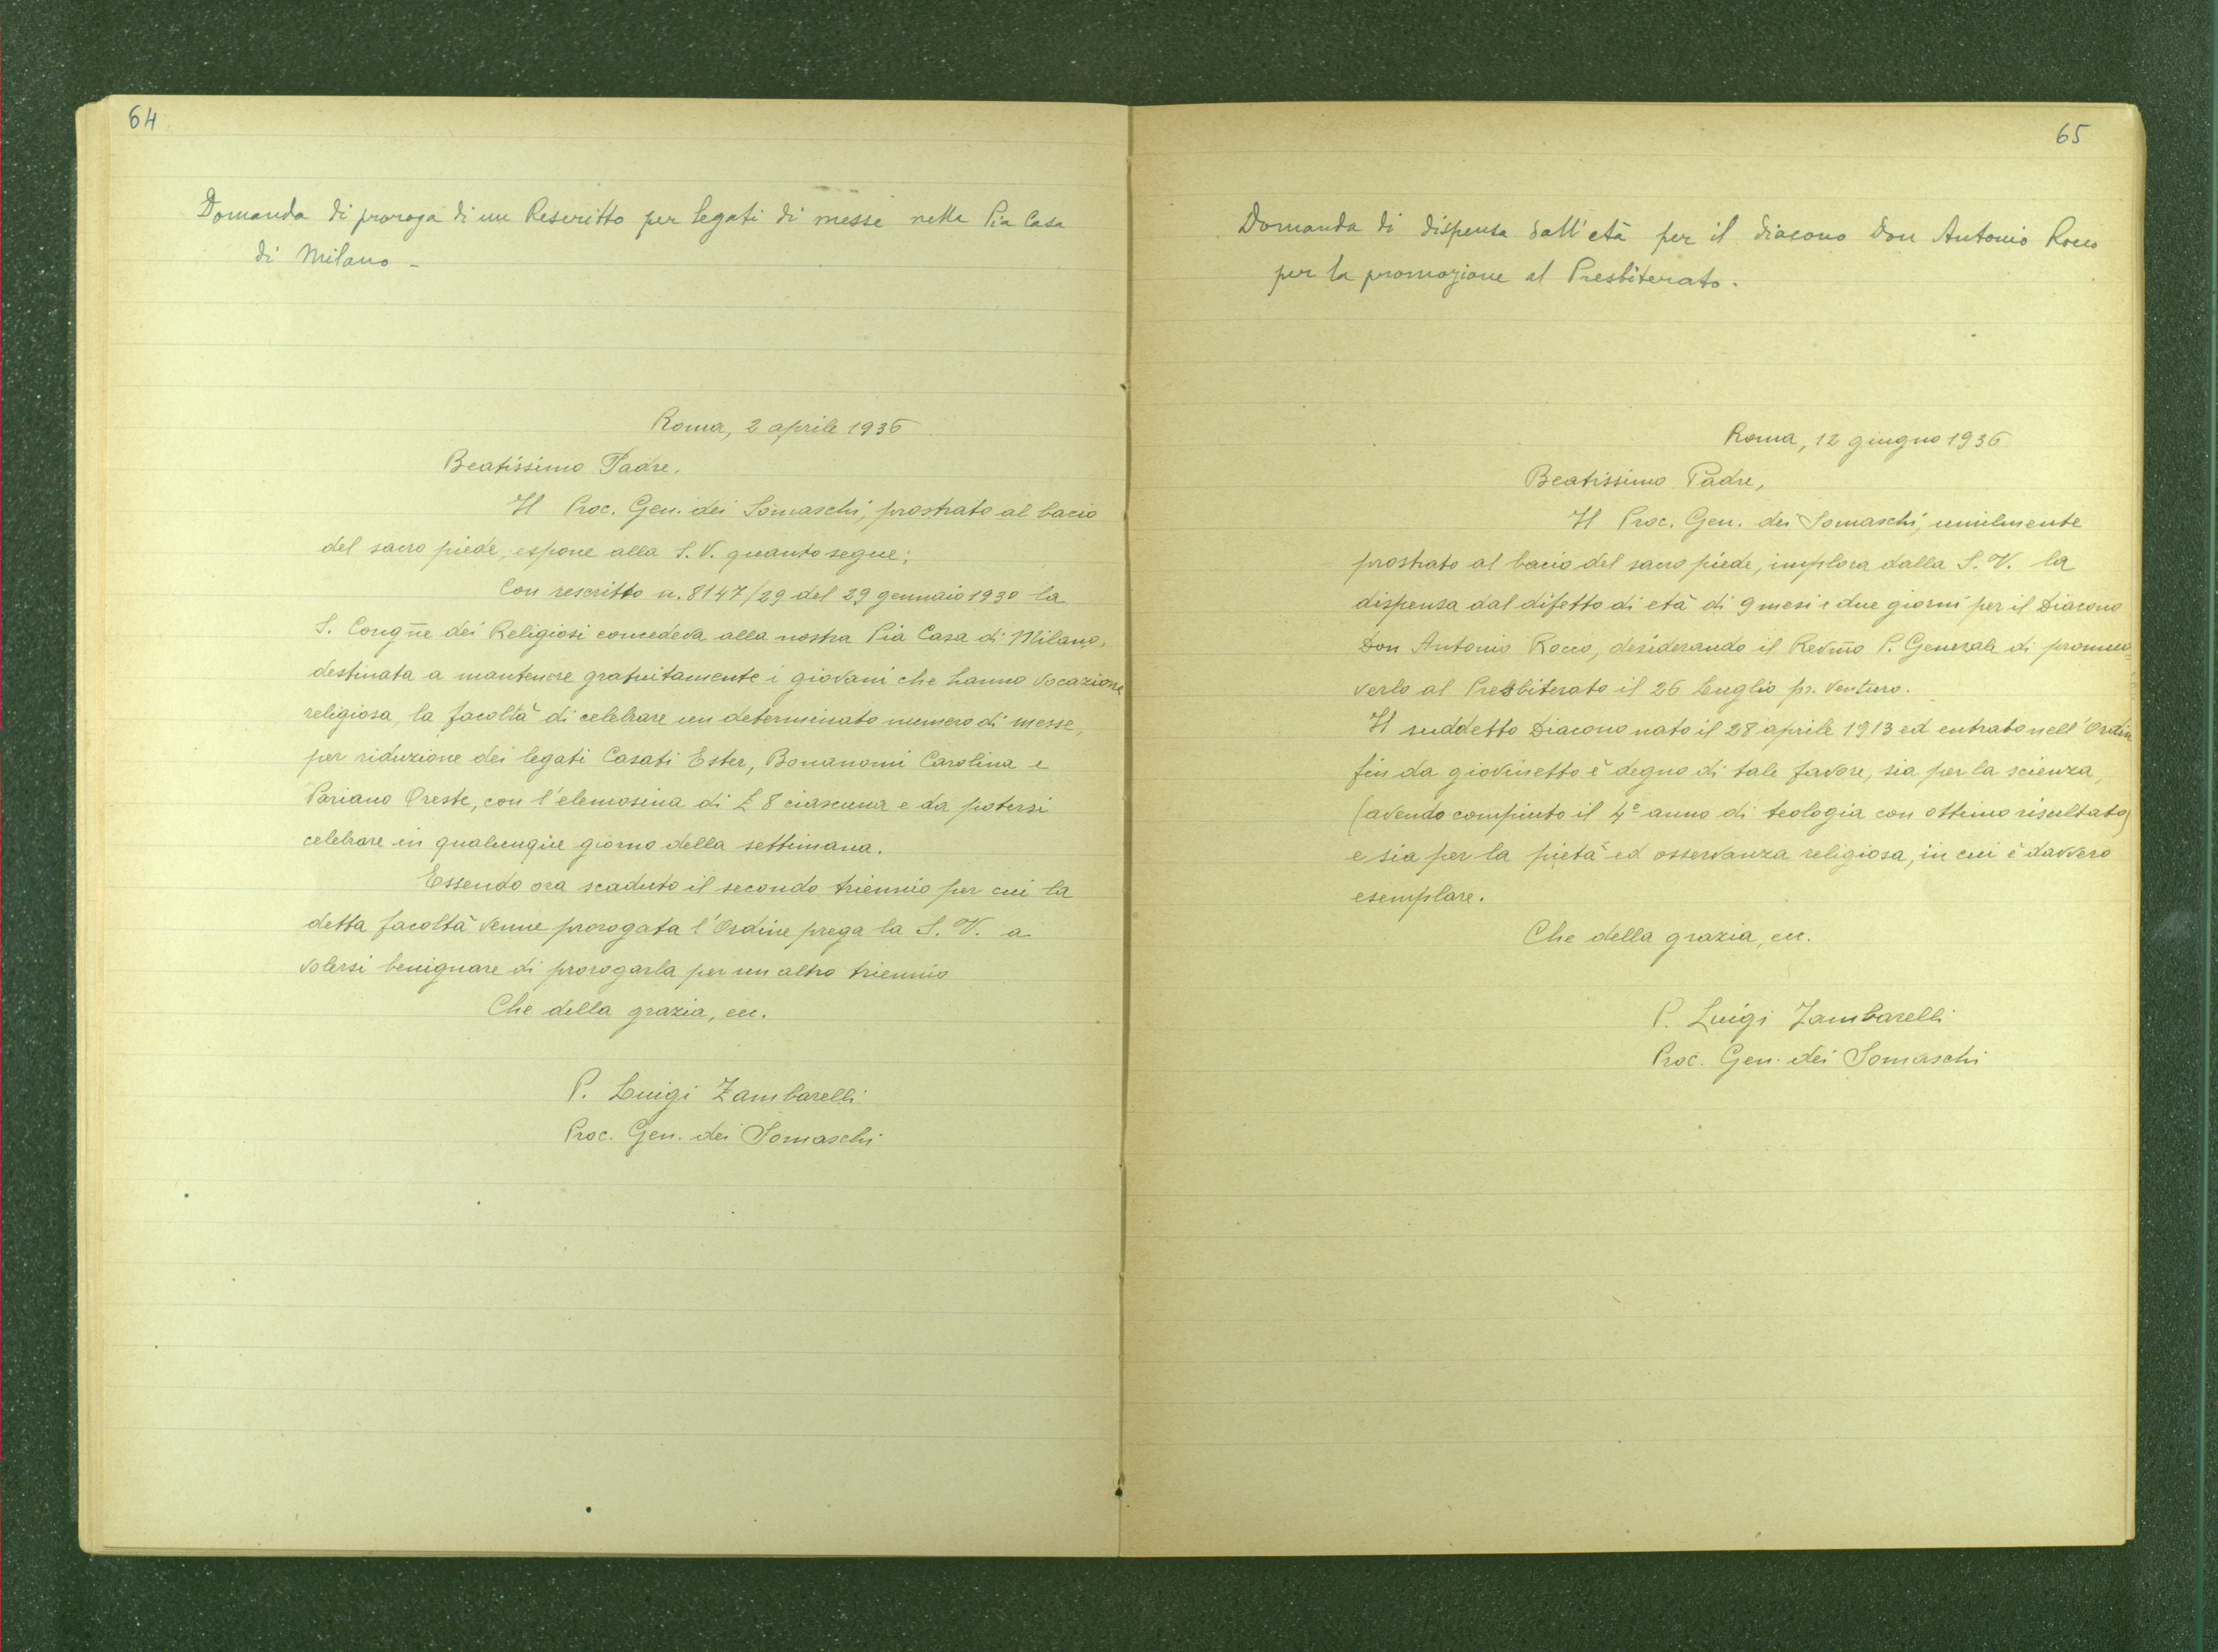 64
Domanda di proroga di un Rescritto per legati di messe nella Pia Casa
di Milano -
Roma, 2 aprile 1936
Beatissimo Padre.
Il Proc. Gen. dei Somaschi, prostrato al bacio
del sacro piede, espone alla S. V. quanto segue:
Con rescritto n. 8147/29 del 29 gennaio 1930 la
S. Congñe dei Religiosi concedeva alla nostra Pia Casa di Milano,
destinata a mantenere gratuitamente i giovani che hanno vocazione
religiosa, la facoltà di celebrare un determinato numero di messe,
per riduzione dei legati Casati Ester, Bonanomi Carolina e
Pariano Oreste, con l'elemosina di £ 8 ciascuna e da potersi
celebrare in qualunque giorno della settimana.
Essendo ora scaduto il secondo triennio per cui la
detta facoltà venne prorogata l'Ordine prega la S. V. a
volersi benignare di prorogarla per un altro triennio
Che della grazia, ecc.
P. Luigi Zambarelli
Proc. Gen. dei Somaschi
65
Domanda di dispensa dall'età per il diacono Don Antonio Rocco
per la promozione al Presbiterato.
Roma, 12 giugno 1936
Beatissimo Padre,
Il Proc. Gen. dei Somaschi, umilmente
prostrato al bacio del sacro piede, implora dalla S. V. la
dispensa dal difetto di età di 9 mesi e due giorni per il Diacono
Don Antonio Rocco, desiderando il Revm̃o P. Generale di promuo=
verlo al Presbiterato il 26 Luglio pr. venturo.
Il suddetto Diacono nato il 28 aprile 1913 ed entrato nell'Ordin
fin da giovinetto è degno di tale favore, sia per la scienza,
(avendo compiuto il 4º anno di teologia con ottimo risultato)
e sia per la pietà ed osservanza religiosa, in cui è davvero
esemplare.
Che della grazia, ecc.
P. Luigi Zambarelli
Proc. Gen. dei Somaschi